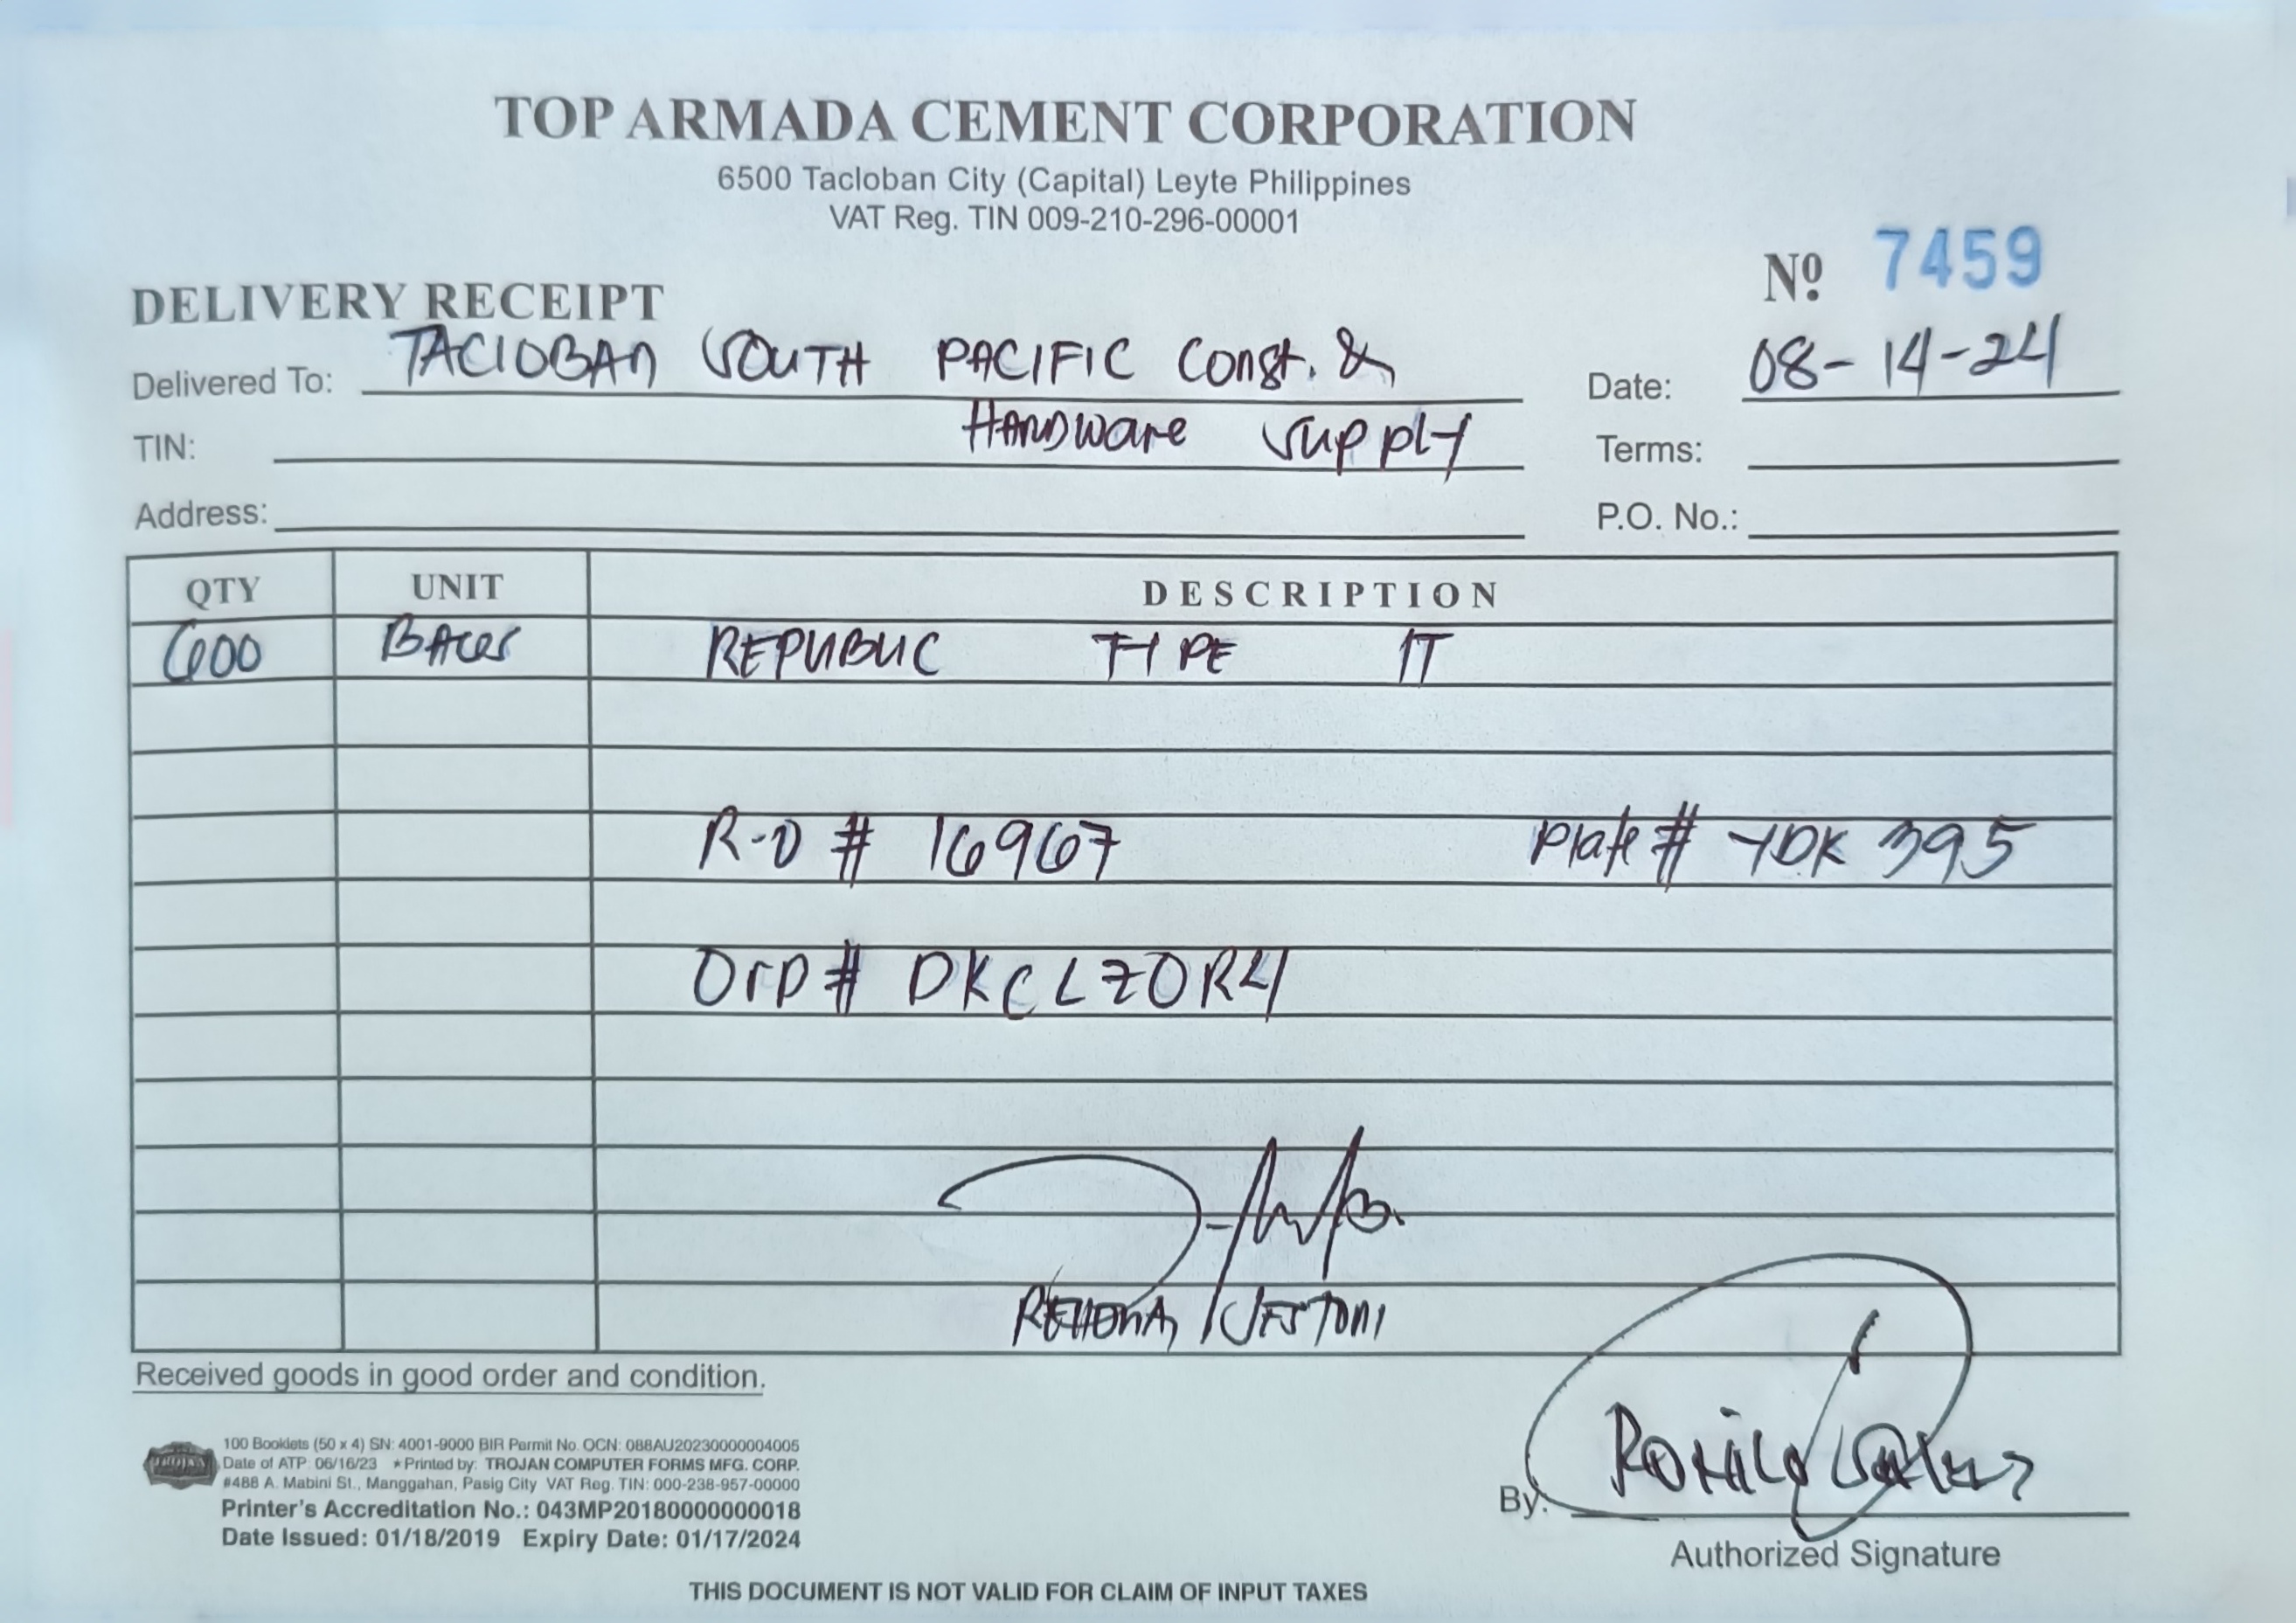 TOP ARMADA CEMENT CORPORATION
6500 Tacloban City (Capital) Leyte Philippines
VAT Reg. TIN 009-210-296-00001
Nº 7459
DELIVERY RECEIPT
Delivered To: TACLOBAN SOUTH PACIFIC Const. & Date: 08-14-24
Hardware Supply
TIN: Terms:
Address: P.O. No.:
QTY UNIT DESCRIPTION
600 BAGS REPUBLIC TYPE 1T
R-O # 16967 Plate # YDK 395
OrD # DKCLZOR4
JESTONI
Received goods in good order and condition.
TROJAN
100 Booklets (50 x 4) SN: 4001-9000 BIR Permit No. OCN: 088AU20230000004005
Date of ATP: 06/16/23 ★Printed by: TROJAN COMPUTER FORMS MFG. CORP.
#488 A. Mabini St., Manggahan, Pasig City VAT Reg. TIN: 000-238-957-00000
Printer's Accreditation No.: 043MP20180000000018
Date Issued: 01/18/2019 Expiry Date: 01/17/2024
By:
Authorized Signature
THIS DOCUMENT IS NOT VALID FOR CLAIM OF INPUT TAXES